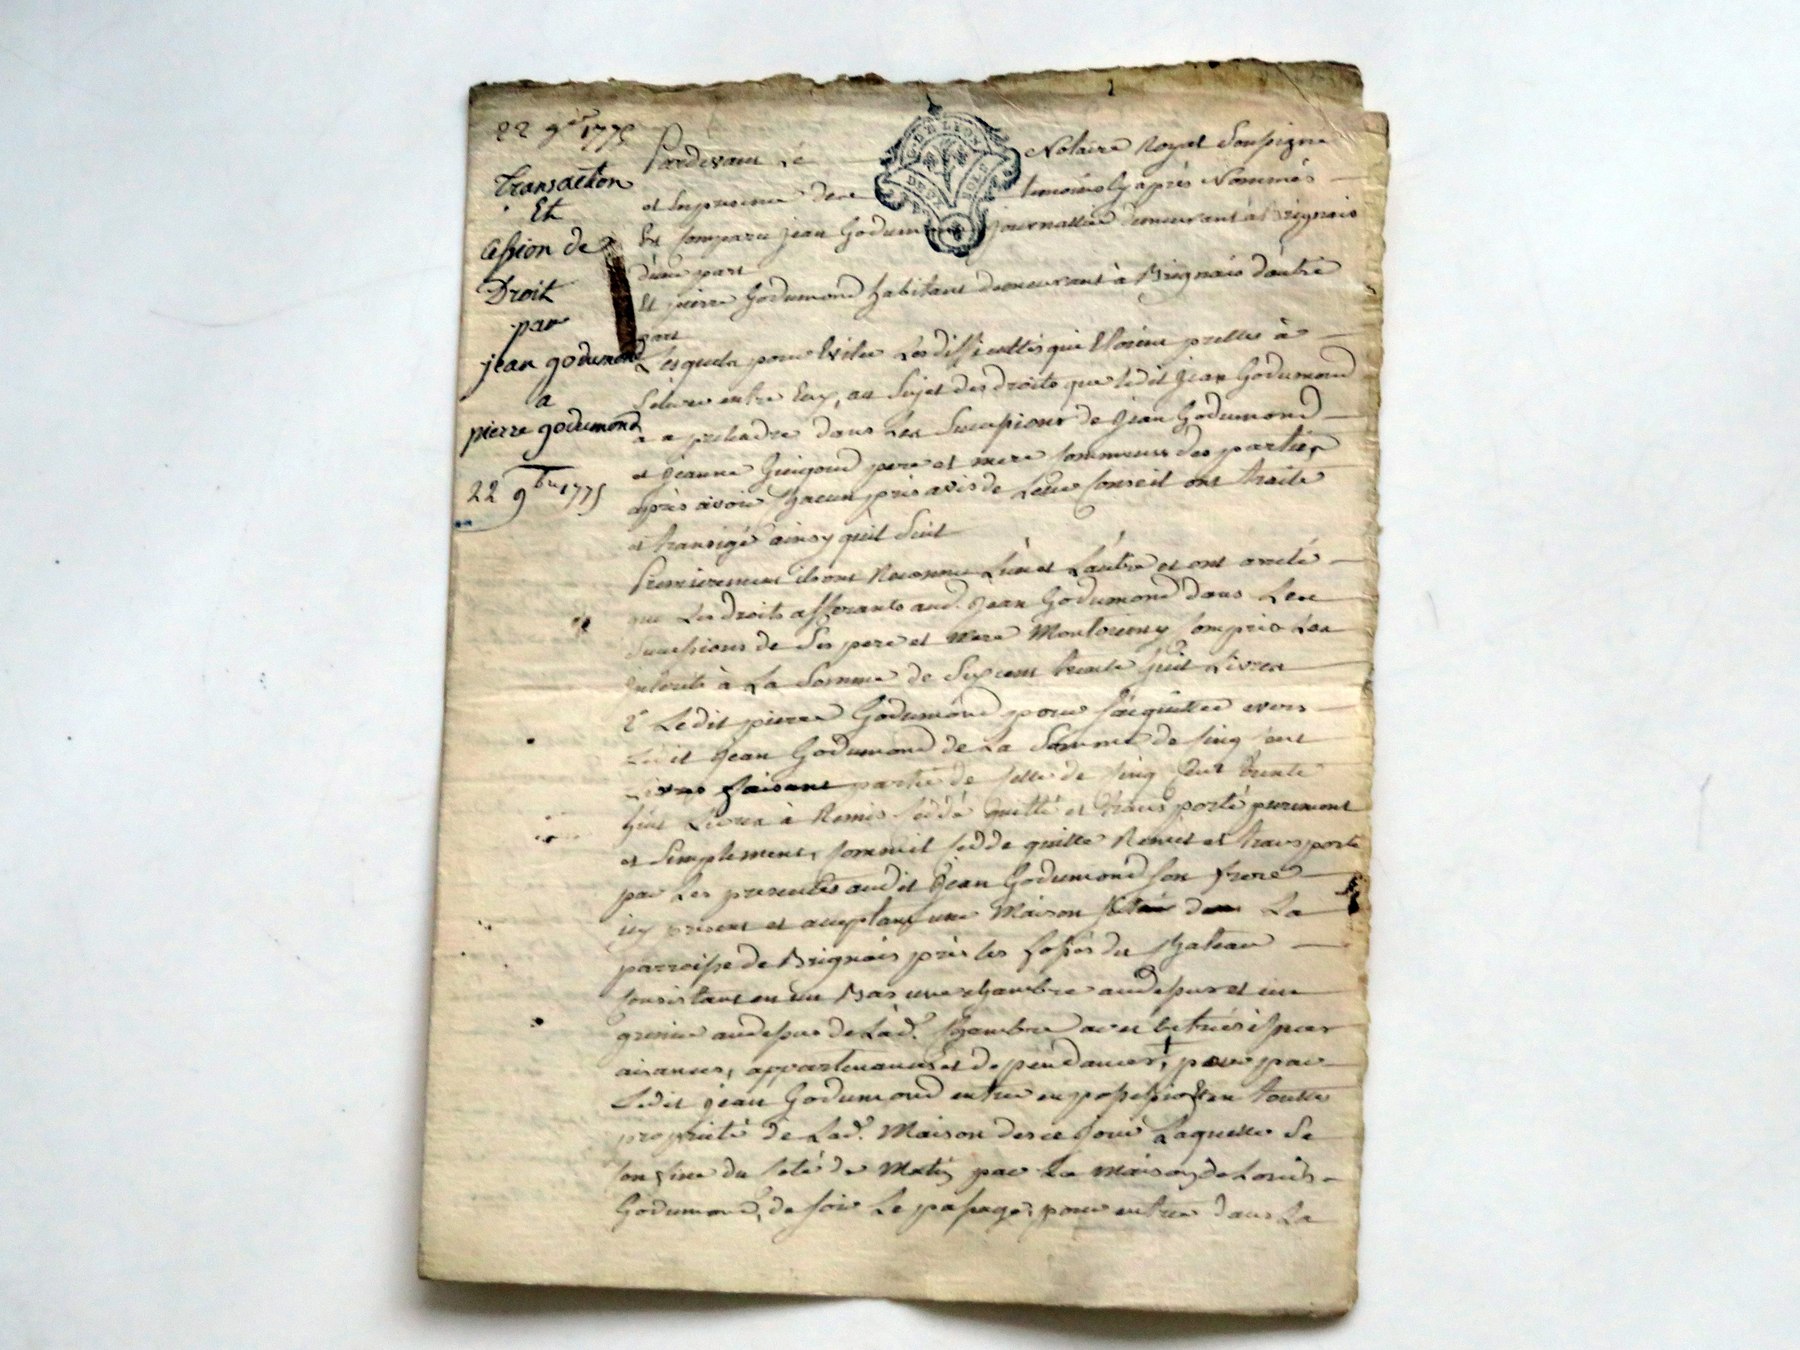 22 9bre 1775
Transaction
Et
Cession de
Droit
par
jean godumond
a
pierre godumond
22 9bre 1775
G. DE LION
DEUX SOLS
Pardevant Le Notaire Royal Soussigné
et En presence des temoins Cy après Nommés
Est Comparu jean Godumond journallier demeurant à Brignais
d'une part
Et pierre Godumond habitant demeurant à Brignais d'autre
part
Lesquels pour Eviter Les difficultés qui Etoient prettes à
S'elever entre Eux, au Sujet des droits que ledit jean Godumond
a a pretendre dans Les Successions de jean Godumond
et jeanne pere et mere Communs des parties
après avoir Chacun pris avis de Leur Conseil ont traité
et transigé ainsy qu'il Suit
Premierement ils ont Reconnu L'un et L'autre et ont arreté
que Les droits afferants aud. jean Godumond dans Les
Successions de Ses pere et mere Montoient y Compris Les
interets à La Somme de Six cent trente huit Livres
2° Ledit pierre Godumond pour S'acquitter envers
Ledit jean Godumond de La Somme de Cinq Cent
Livres faisant partie de Celle de Cinq Cent trente
huit Livres à Remis Cédé quitté et transporté purement
et Simplement, Comme il Cedde quitte Remet et transporte
par Les presentes audit jean Godumond Son frere
icy present et acceptant une Maison Située dans La
parroisse de Brignais près les fossés du Chateau
Consistant en un Bas une chambre audessus et un
grenier audessus de Lad. Chambre avec
aisances, appartenances et dependances, pour par
Ledit jean Godumond entrer en possession Et en toutte
propriété de Lad. Maison des ce jour Laquelle Se
Confine du Coté de Matin par La maison de Louis
Godumond, de Soir Le passage pour entrer dans La